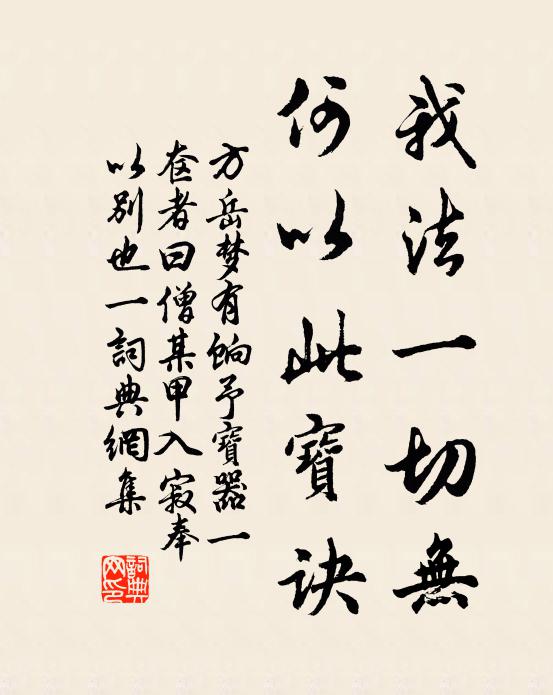 我法一切無
何以此寶訣
方岳梦有餉予寶器一
奁者曰僧某甲入寂奉
以别也一詞典網集
詞典
网印